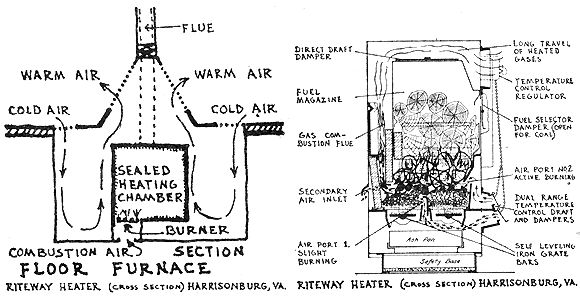 FLUE
WARM AIR
WARM AIR
COLD AIR
COLD AIR
SEALED
HEATING
CHAMBER
BURNER
COMBUSTION AIR
SECTION
FLOOR FURNACE
RITEWAY HEATER (CROSS SECTION) HARRISONBURG, VA.
DIRECT DRAFT
DAMPER
FUEL
MAGAZINE
GAS COM-
BUSTION FLUE
SECONDARY
AIR INLET
AIR PORT 1.
SLIGHT
BURNING
LONG TRAVEL
OF HEATED
GASES
TEMPERATURE
CONTROL
REGULATOR
FUEL SELECTOR
DAMPER (OPEN
FOR COAL)
AIR PORT NO2
ACTIVE BURNING
DUAL RANGE
TEMPERATURE
CONTROL DRAFT
AND DAMPERS
SELF LEVELING
IRON GRATE
BARS
Ash Pan
Safety Base
RITEWAY HEATER (CROSS SECTION) HARRISONBURG, VA.